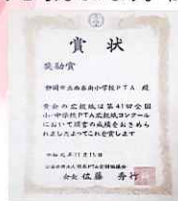 賞状
奨励賞
静岡市立西奈南小学校PTA 殿
貴会の広報紙は第41回全国
小・中学校PTA広報紙コンクール
において頭書の成績をおさめら
れましたよってこれを賞します
令和元年11月
会長 佐藤 秀行